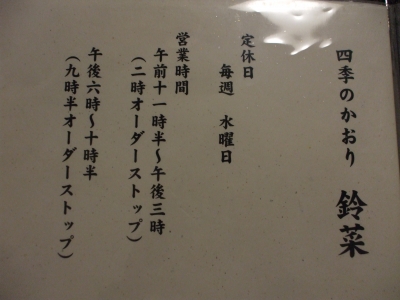 四季のかおり 鈴菜
定休日
毎週 水曜日
営業時間
午前十一時半〜午後三時
(二時オーダーストップ)
午後六時〜十時半
(九時半オーダーストップ)